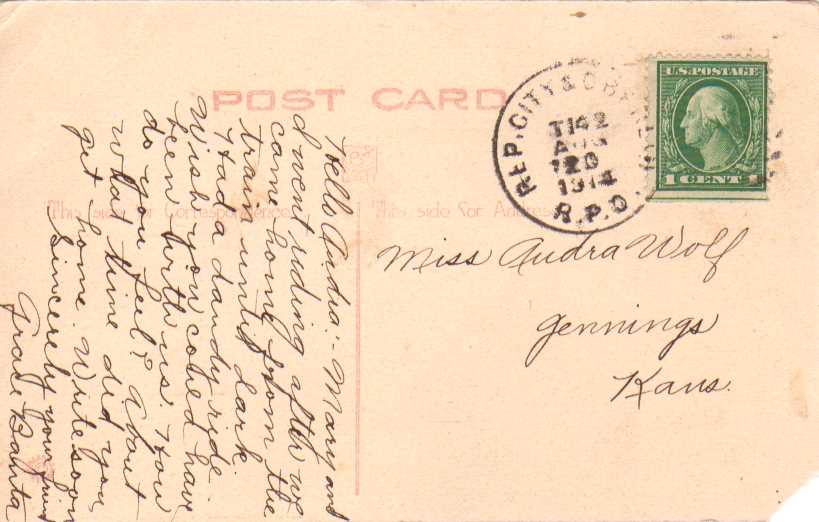 POST CARD
This side for Correspondence
This side for Address
REP. CITY & OBERLIN
T142
AUG
20
1914
R.P.O.
U.S. POSTAGE
1 CENT 1
Miss Audra Wolf
Jennings
Kans.
Hello Audra:- Mary and
I went riding after we
came home from the
train until dark.
Had a dandy ride.
Wish you could have
been with us. How
do you feel? About
what time did you
get home. Write soon
Sincerely your friend
Grace Banta